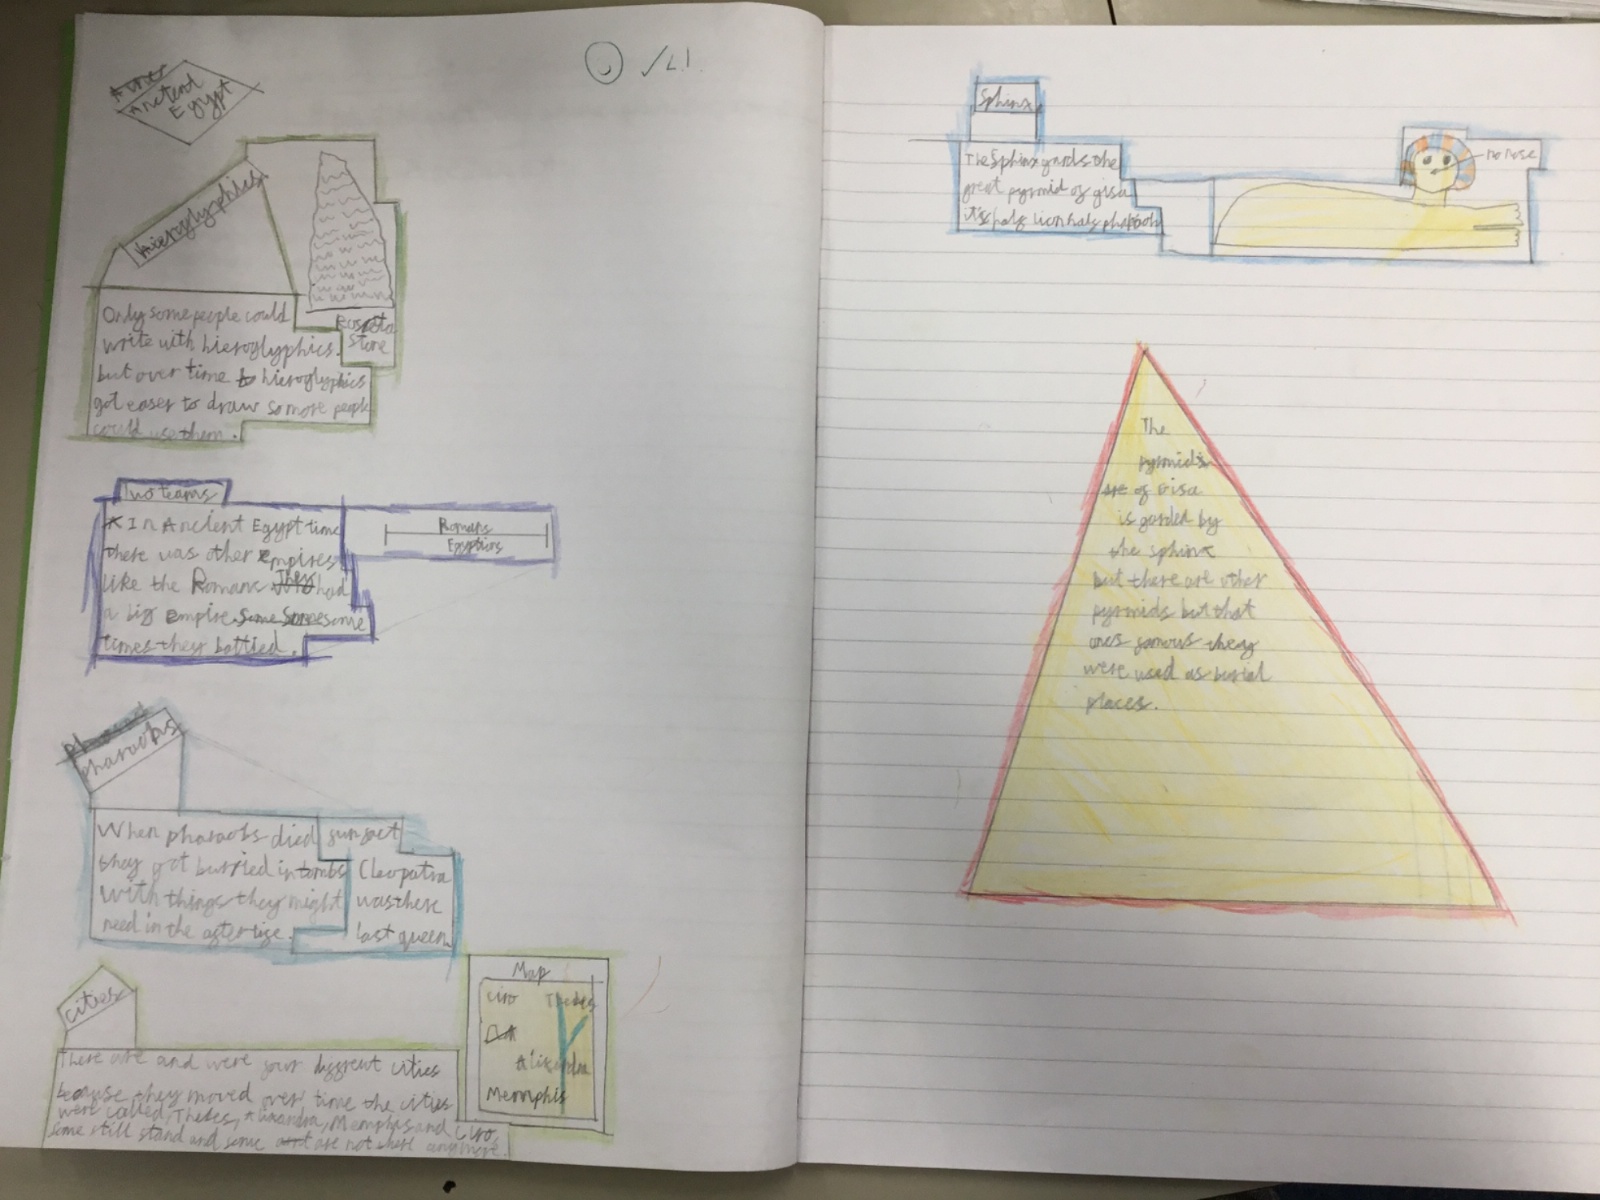 Ancient
Egypt
✓L.I.
Hieroglyphics
Rosetta
Stone
Only some people could
write with hieroglyphics.
but over time hieroglyphics
got easer to draw so more people
could use them.
Two teams
In Ancient Egypt time
there was other empires
like the Romans They had
a big empire. Some Some some
times they battled.
Romans
Egyptions
pharaohs
When pharaohs died
they got burried in tombs
with things they might
need in the afterlife.
fun fact
Cleopatra
was there
last queen
cities
There are and were four diffrent cities
because they moved over time the cities
were called, Thebes, Alixandra, Memphis and Ciro,
some still stand and some are not there anymore.
Map
Ciro Thebes
Alixandra
Memphis
Sphinx
The Sphinx gards the
great pyrmid of gisa
it's half lion half pharaoh
no nose
The
pyrmids
are of Gisa
is garded by
the sphinx
but there are other
pyrmids but that
ones famous they
were used as burial
places.